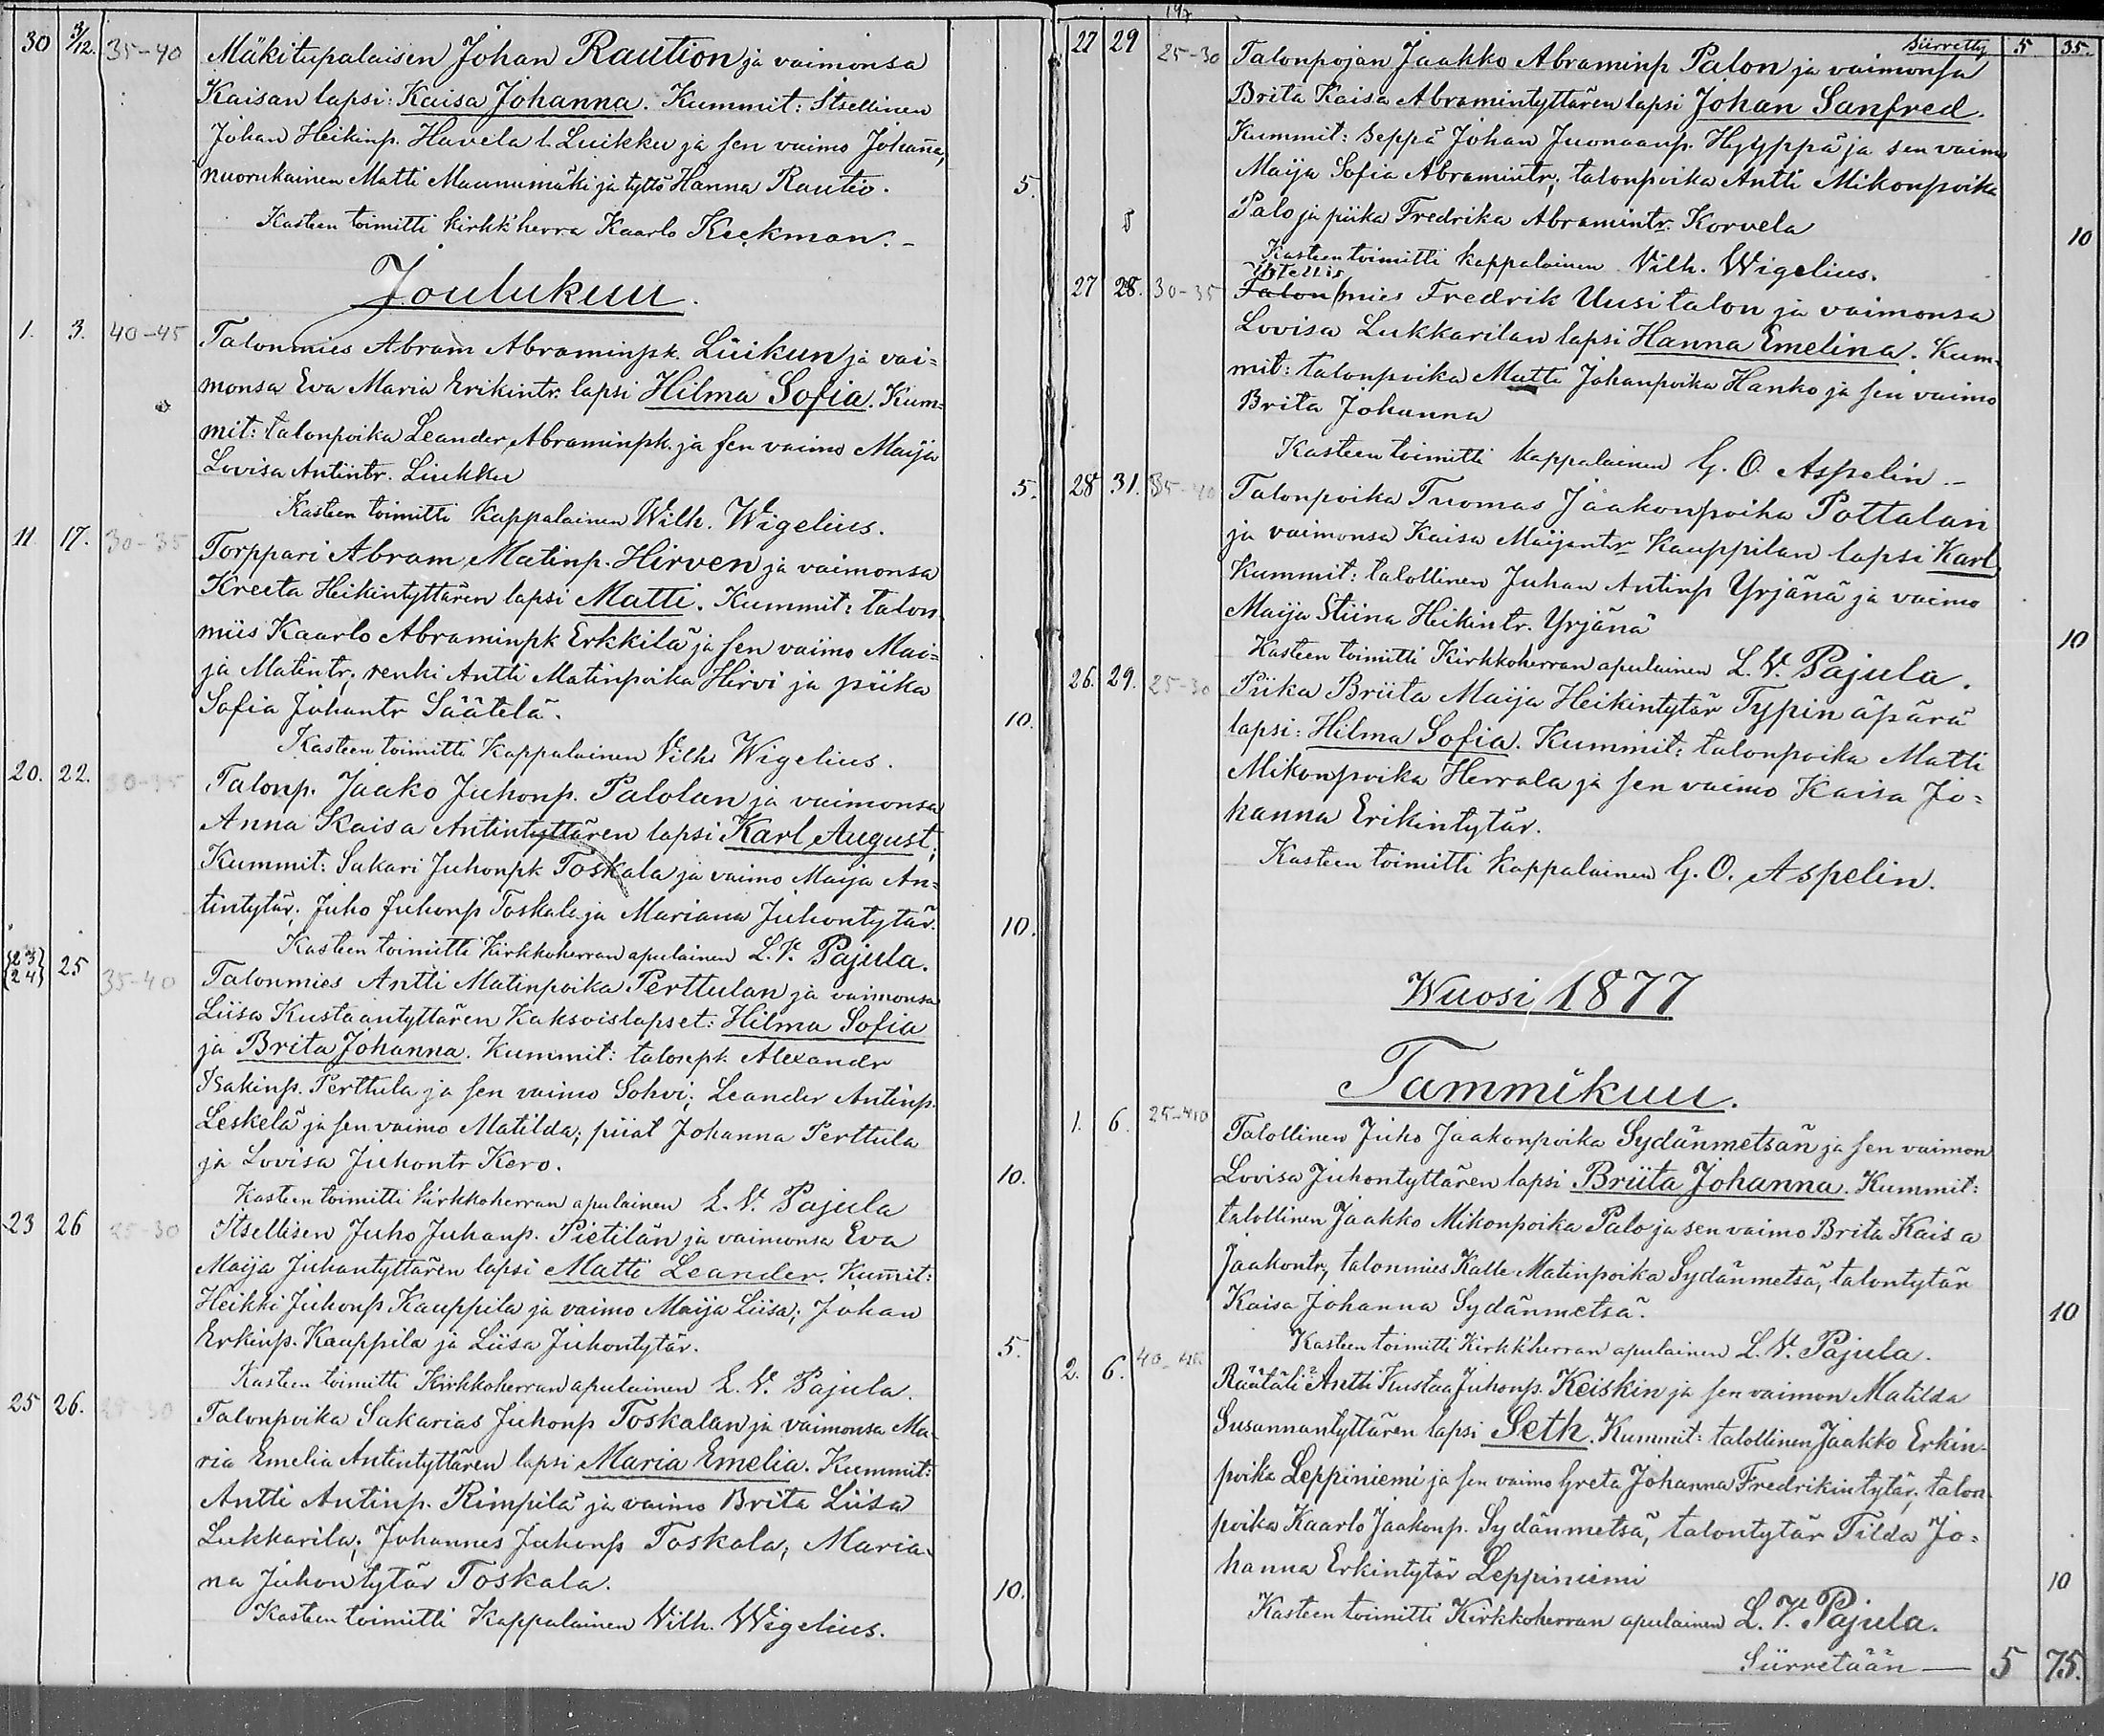 30 3/12. 35-40 Mäkitupalaisen Johan Raution ja vaimonsa
Kaisan lapsi: Kaisa Johanna. Kummit: Itsellinen
Johan Heikinp. Havela l. Luikku ja sen vaimo Johanna,
nuorukainen Matti Maunumäki ja tyttö Hanna Rautio. 5.
Kasteen toimitti kirkk'herra Kaarlo Keckman.-
Joulukuu.
1. 3. 40-45 Talonmies Abram Abraminpk. Luikun ja vai=
monsa Eva Maria Erikintr. lapsi Hilma Sofia. Kum=
mit: talonpoika Leander Abraminpk. ja sen vaimo Maija
Lovisa Antintr. Liukku 5.
Kasteen toimitti Kappalainen Wilh. Wigelius.
11 17. 30-35 Torppari Abram Matinp. Hirven ja vaimonsa
Kreeta Heikintyttären lapsi Matti. Kummit: talon
miis Kaarlo Abraminpk Erkkilä ja sen vaimo Mai=
ja Matintr, renki Antti Matinpoika Hirvi ja piika
Sofia Johantr Säätelä. 10.
Kasteen toimitti Kappalainen Vilh. Wigelius.
20. 22. 30-35 Talonp. Jaako Juhonp. Palolan ja vaimonsa
Anna Kaisa Antintyttären lapsi Karl August;
Kummit: Sakari Juhonpk Toskala ja vaimo Maija An=
tintytär, Juho Juhonp Toskala ja Mariana Juhontytär. 10.
Kasteen toimitti Kirkkoherran apulainen L. V. Pajula.
{23} {24} 25 35-40 Talonmies Antti Matinpoika Perttulan ja vaimonsa
Liisa Kustaantyttären Kaksoislapset: Hilma Sofia
ja Brita Johanna. Kummit: talonpk. Alexandr
Isakinp. Perttula ja sen vaimo Sohvi; Leander Antinp.
Leskelä ja sen vaimo Matilda; piiat Johanna Perttula
ja Lovisa Juhontr Kero. 10.
Kasteen toimitti kirkkoherran apulainen L. V. Pajula
23 26 25-30 Itsellisen Juho Juhanp. Pietilän ja vaimonsa Eva
Maija Juhantyttären lapsi Matti Leander. Kummit:
Heikki Juhonp Kauppila ja vaimo Maija Liisa; Johan
Erkinp. Kauppila ja Liisa Juhontytär. 5.
Kasteen toimitti Kirkkoherran apulainen L. V. Pajula.
25 26. 25-30 Talonpoika Sakarias Juhonp Toskalan ja vaimonsa Ma-
ria Emelia Antintyttären lapsi Maria Emelia. Kummit:
Antti Antinp. Rimpilä ja vaimo Brita Liisa
Lukkarila; Johannes Juhonp Toskala, Maria-
na Juhontytär Toskala. 10.
Kasteen toimitti Kappalainen Vilh. Wigelius.
197
Siirretty 5 35.
27 29 25-30 Talonpojan Jaakko Abraminp Palon ja vaimonsa
Brita Kaisa Abramintyttären lapsi Johan Sanfred.
Kummit: Seppä Johan Juonaanp. Hylyppä ja sen vaimo
Maija Sofia Abramintr, talonpoika Antti Mikonpoika
Palo ja piika Fredrika Abramintr. Korvela 10
Kasteen toimitti kappalainen Vilh. Wigelius.
27 28. 30-35 Talonmies Fredrik Uusitalon ja vaimonsa
Lovisa Lukkarilan lapsi Hanna Emelina. Kum-
mit: talonpoika Matti Johanpoika Hanko ja sen vaimo
Brita Johanna
Kasteen toimitti kappalainen G. O. Aspelin.-
28 31. 35-40 Talonpoika Tuomas Jaakonpoika Pottalan
ja vaimonsa Kaisa Maijantr Kauppilan lapsi Karl.
Kummit: talollinen Juhan Antinp Yrjänä ja vaimo
Maija Stiina Heikintr. Yrjänä 10
Kasteen toimitti Kirkkoherran apulainen L. V. Pajula.
26. 29. 25-30 Piika Briita Maija Heikintytär Typin äpärä
lapsi: Hilma Sofia. Kummit: talonpoika Matti
Mikonpoika Herrala ja sen vaimo Kaisa Jo=
hanna Erikintytär.
Kasteen toimitti kappalainen G. O. Aspelin.
Wuosi 1877
Tammikuu.
1. 6. 25-40 Talollinen Juho Jaakonpoika Sydänmetsän ja sen vaimon
Lovisa Juhontyttären lapsi Briita Johanna. Kummit:
talollinen Jaakko Mikonpoika Palo ja sen vaimo Brita Kaisa
Jaakontr, talonmies Kalle Matinpoika Sydänmetsä, talontytär
Kaisa Johanna Sydänmetsä. 10
Kasteen toimitti Kirkk'herran apulainen L. V. Pajula.
2. 6. Räätäli Antti Kustaa Juhonp. Keiskin ja sen vaimon Matilda
Susannantyttären lapsi Seth. Kummit: talollinen Jaakko Erkin-
poika Leppiniemi ja sen vaimo Greta Johanna Fredrikintytär, talon
poika Kaarlo Jaakonp. Sydänmetsä, talontytär Tilda Jo=
hanna Erkintytär Leppiniemi 10
Kasteen toimitti Kirkkoherran apulainen L. V. Pajula.
Siirretään — 5 75.